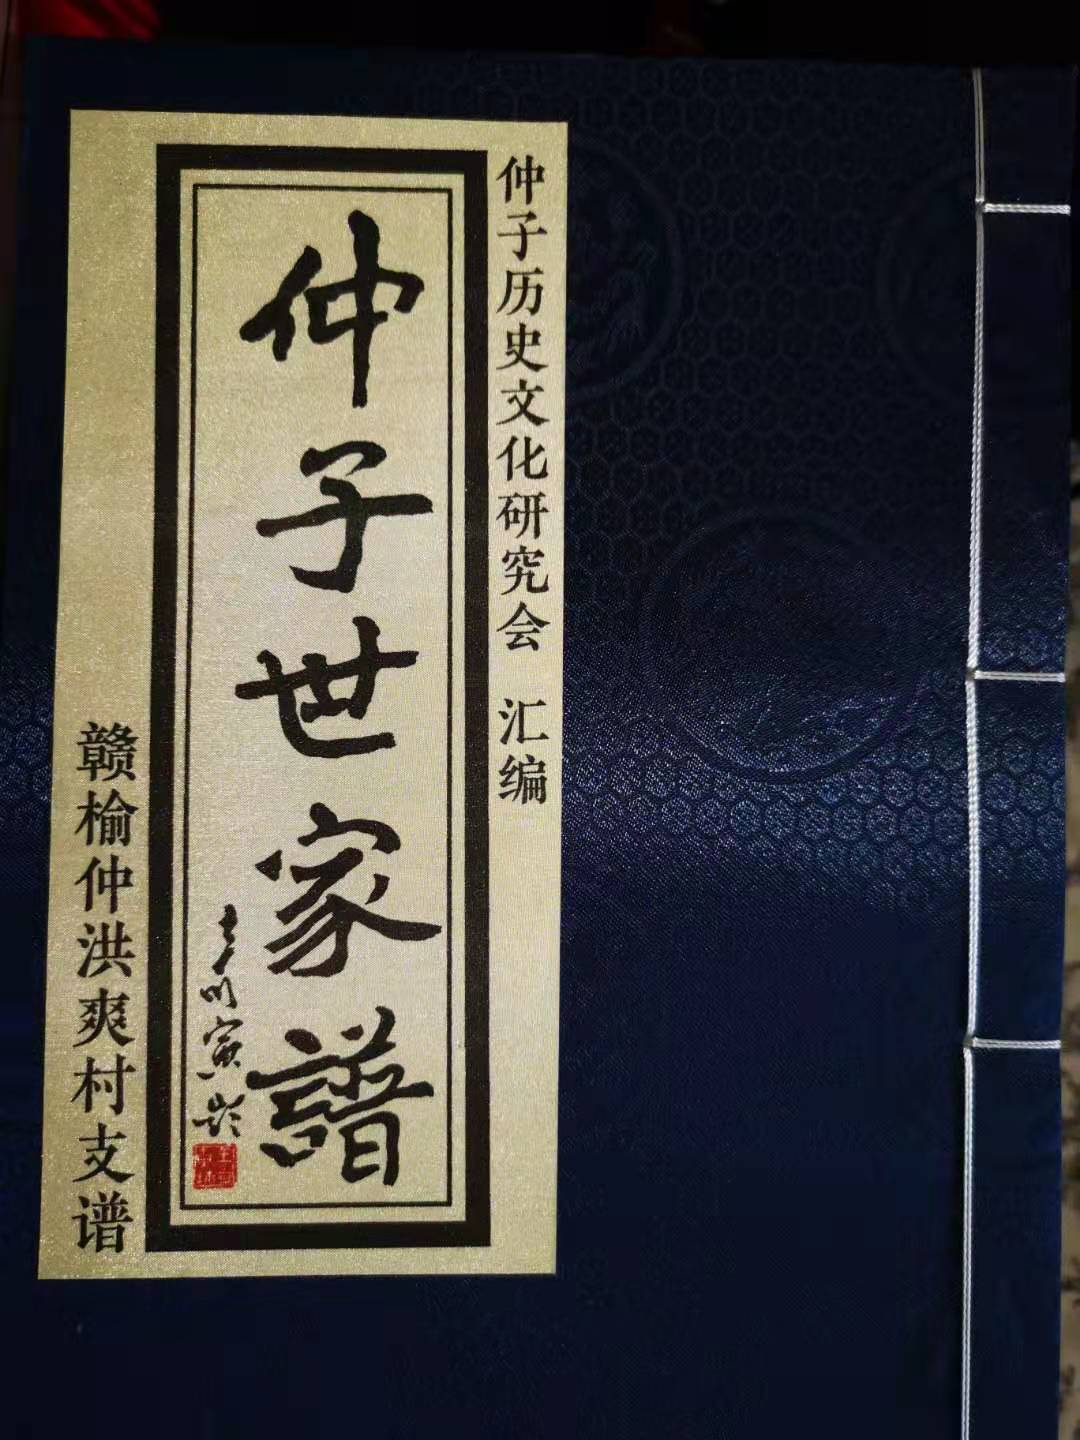 仲子历史文化研究会 汇编
仲子世家譜
赣榆仲洪爽村支谱